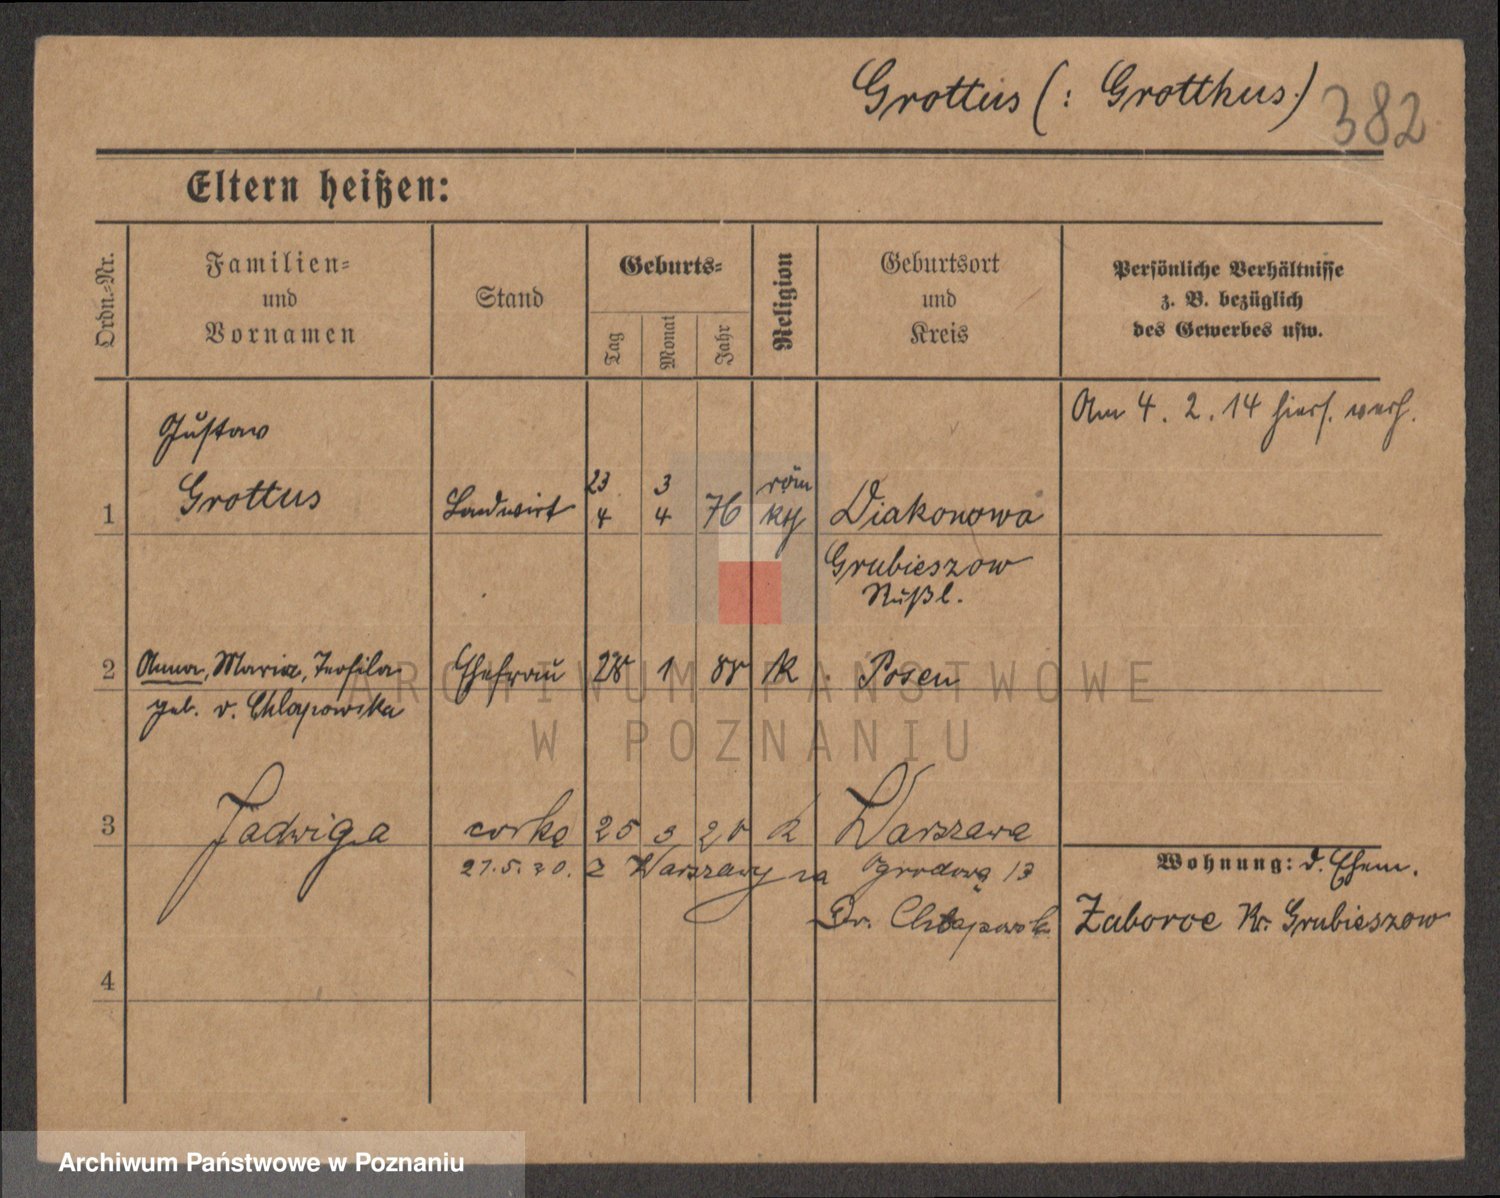 Grottus (: Grotthus.)
382
Eltern heißen:
Ordn.-Nr.
Familien-
und
Vornamen
Stand
Geburts-
Tag
Monat
Jahr
Religion
Geburtsort
und
Kreis
Persönliche Verhältnisse
z. B. bezüglich
des Gewerbes usw.
Am 4. 2. 14 hiers. verh.
Gustaw
23 3 röm
1 Grottus Landwirt 4 4 76 Diakonowo
Grubieszow
Rußl.
2 Anna, Maria, Teofila Ehefrau 1 K Posen
geb. v. Chlapowska
3 Jadwiga corka 25 3 20 k Warszawa
27.5.20. z Warszawy na Ogrodowa 13
Wohnung: d. Ehem.
Dr. Chłapowsk
Zaborce Kr. Grubieszow
4
ARCHIWUM PAŃSTWOWE
W POZNANIU
Archiwum Państwowe w Poznaniu